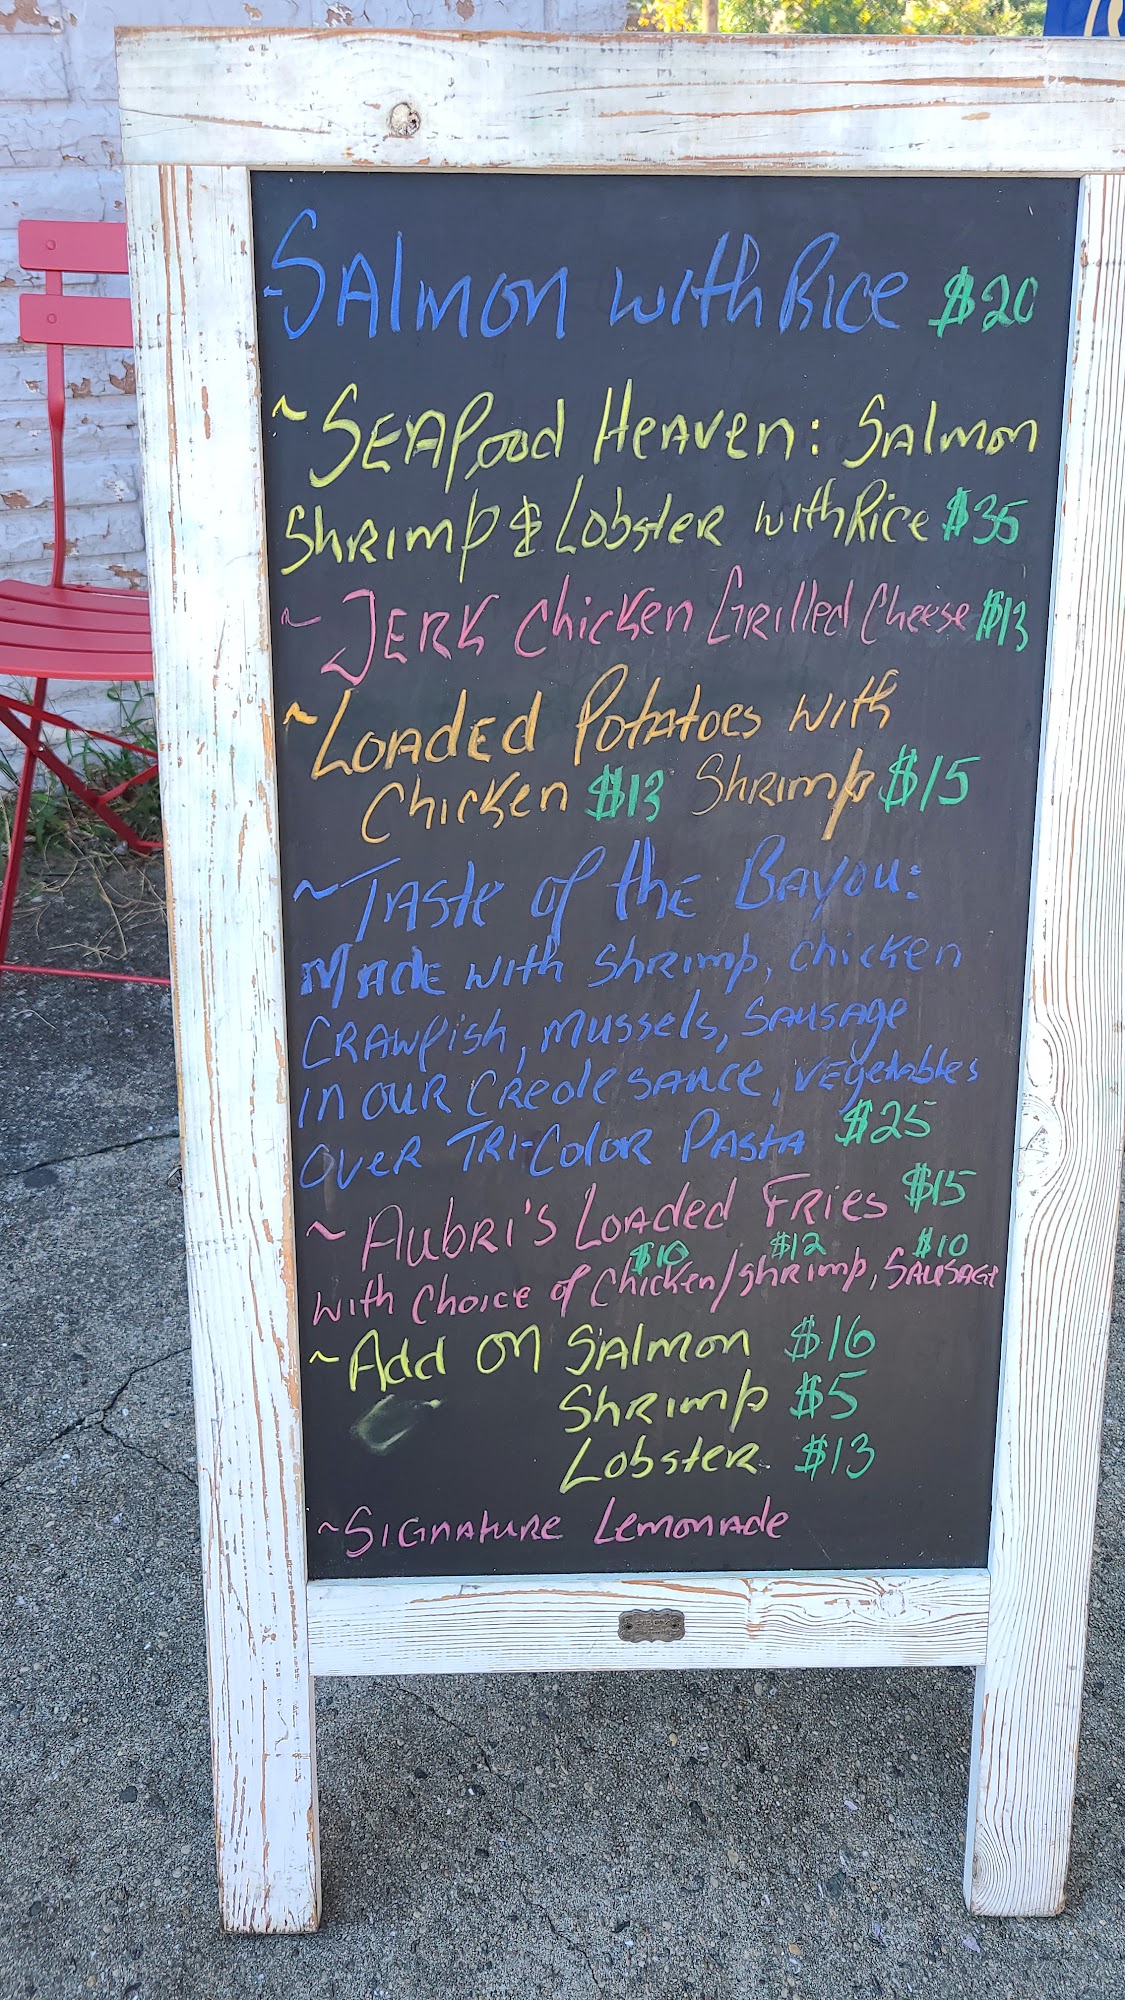 ~Salmon with Rice $20
~Seafood Heaven: Salmon
Shrimp & Lobster with Rice $35
~Jerk Chicken Grilled Cheese $13
~Loaded Potatoes with
Chicken $13 Shrimp $15
~Taste of the Bayou:
Made with shrimp, chicken
crawfish, mussels, sausage
in our creole sauce, vegetables
over Tri-Color Pasta $25
~Aubri's Loaded Fries $15
$10 $12 $10
with choice of Chicken/shrimp, Sausage
~Add on Salmon $16
Shrimp $5
Lobster $13
~Signature Lemonade